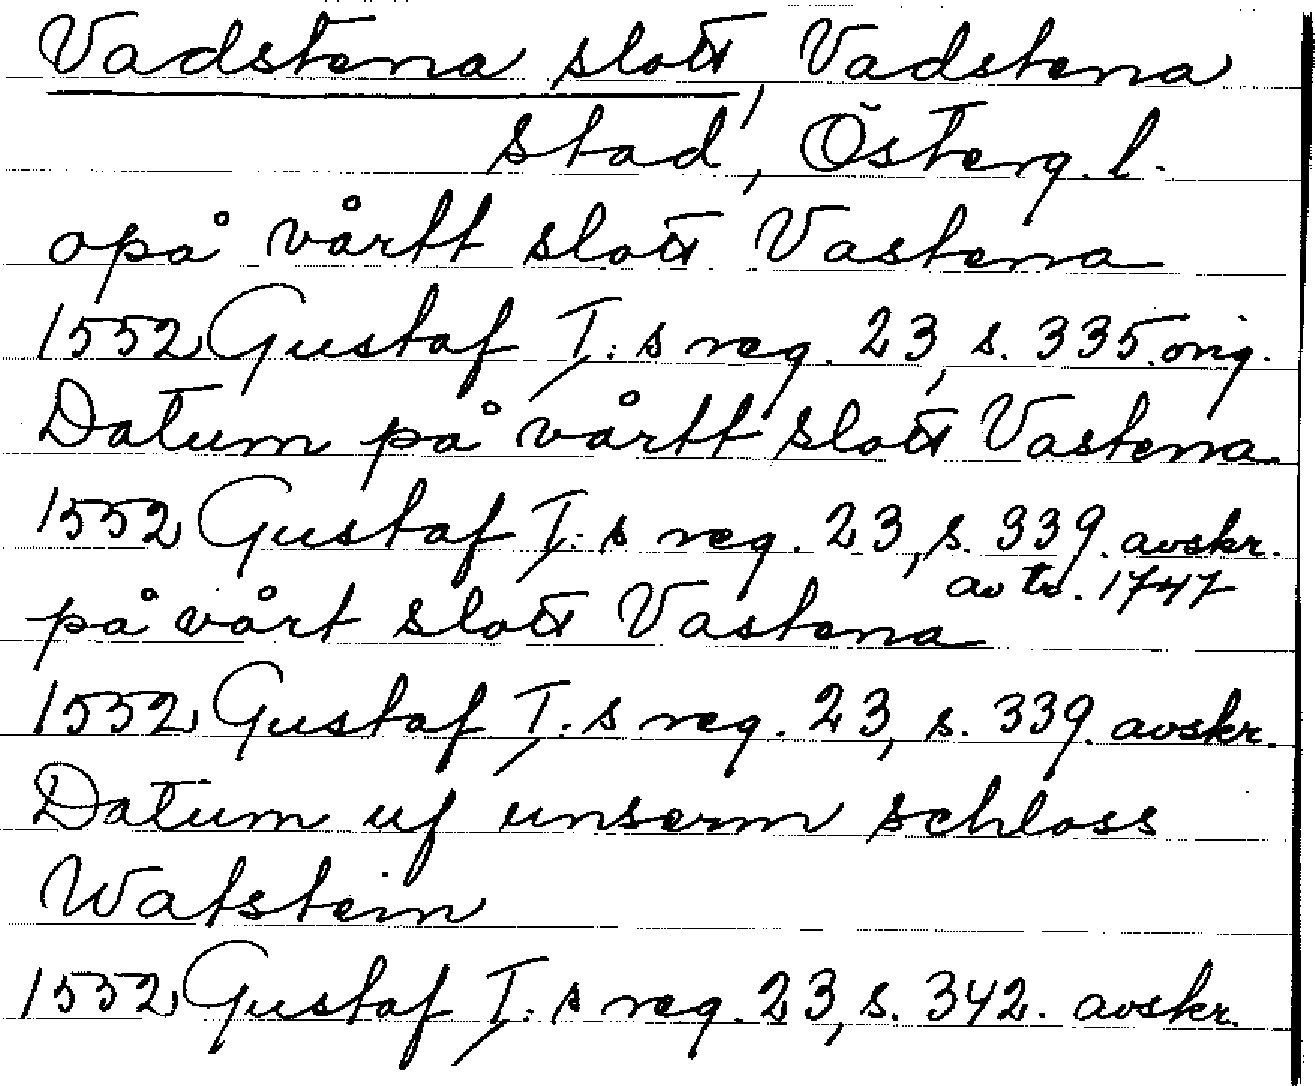 Vadstena slott, Vadstena
stad, Österg. l.
opå vårtt slott Vastena
1552 Gustaf I:s reg. 23, s. 335. orig.
Datum på vårtt slott Vastena
1552 Gustaf I:s reg. 23, s. 339. avskr.
av tr. 1747
på vårt slott Vastena
1552 Gustaf I:s reg. 23, s. 339. avskr.
Datum uf unserm schloss
Watstein
1552 Gustaf I:s reg. 23, s. 342. avskr.